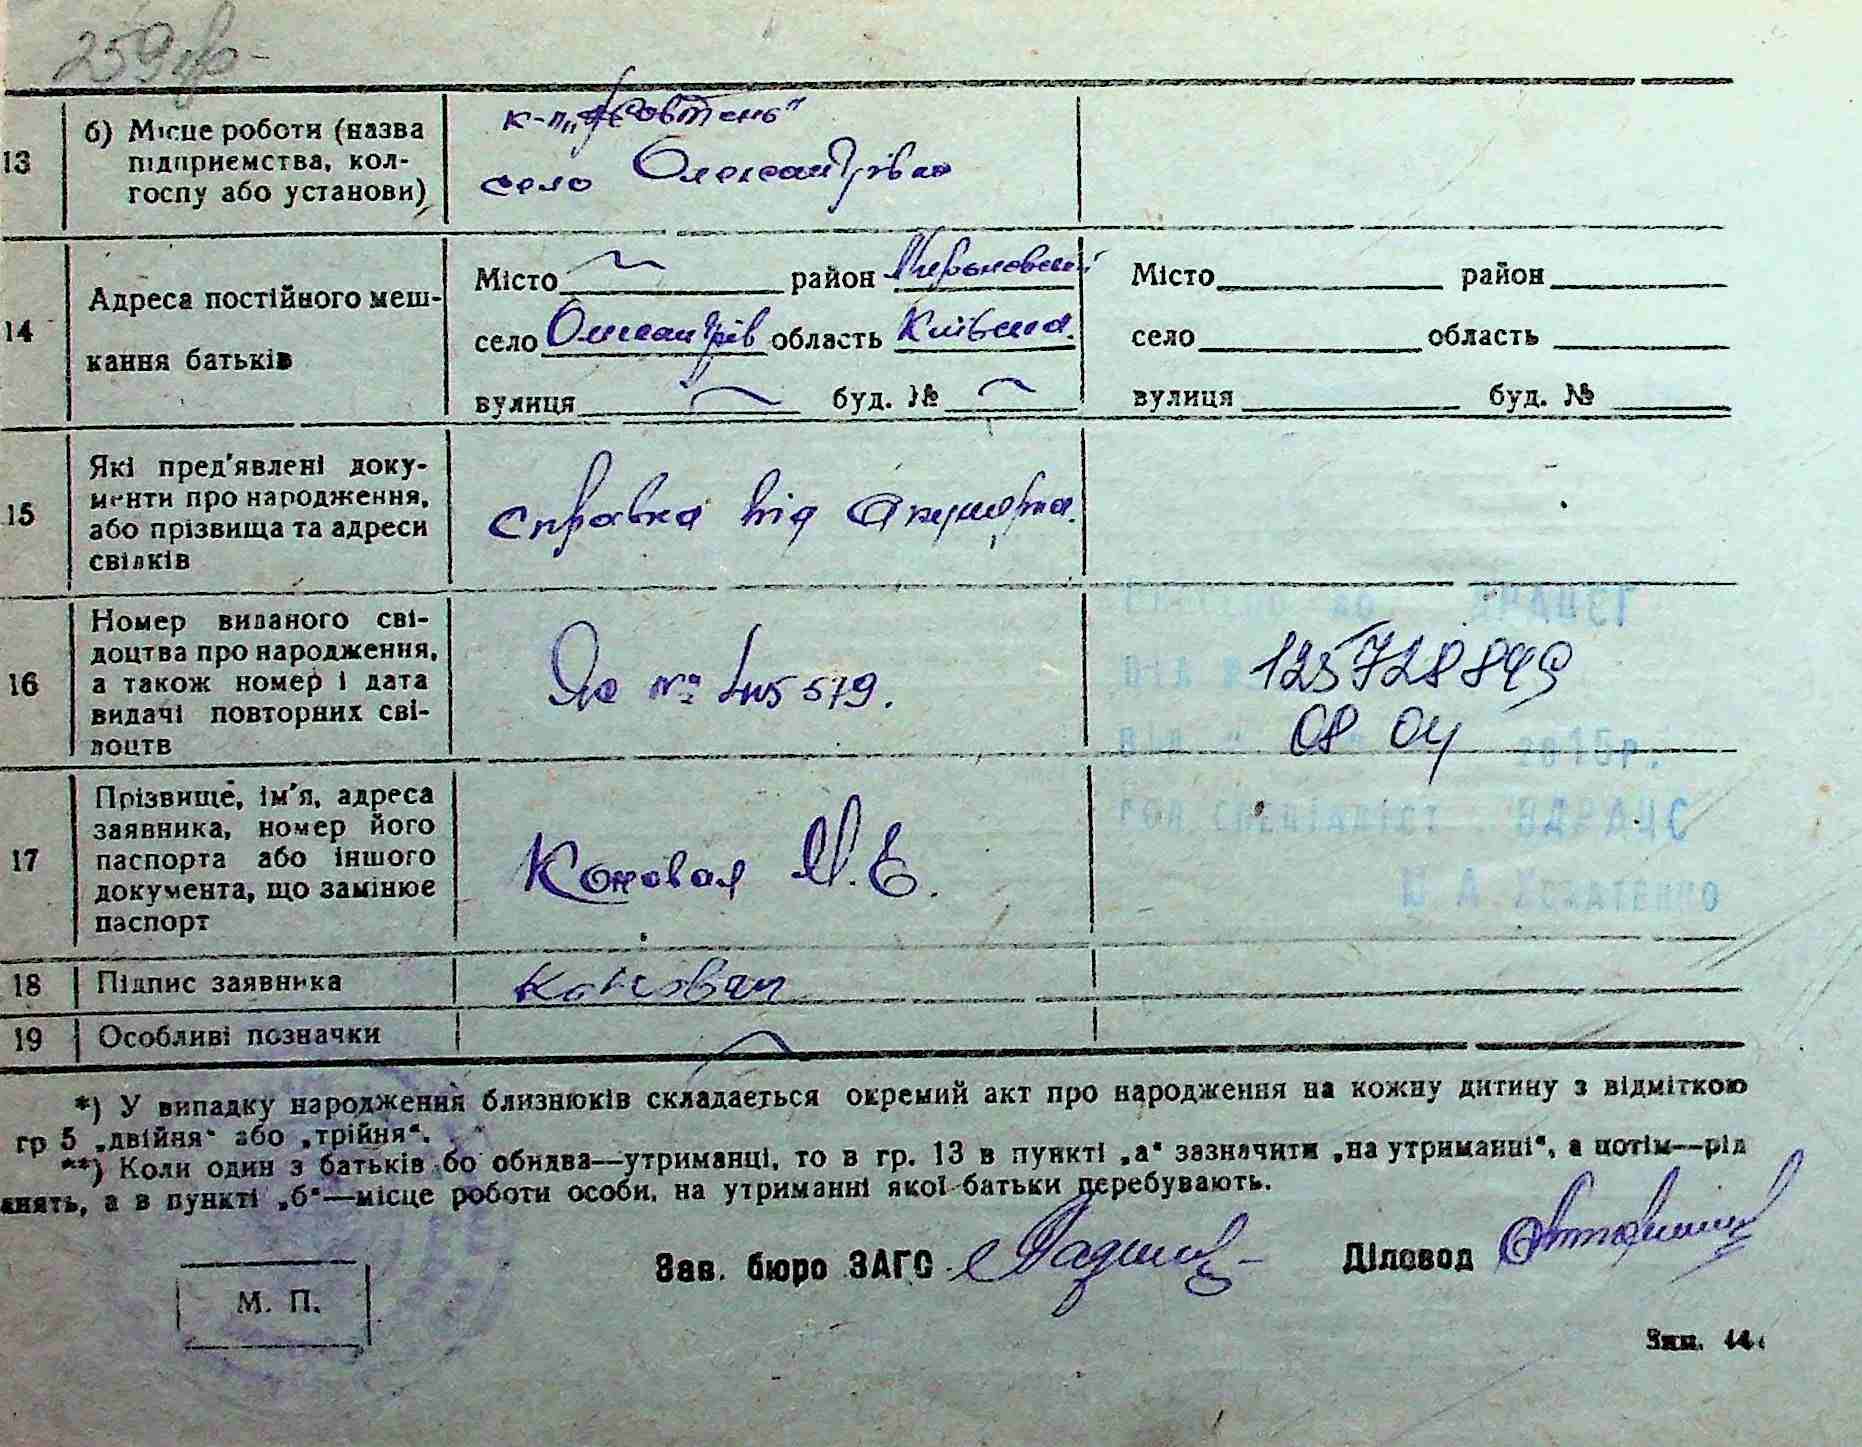 259
13
б) Місце роботи (назва
підприємства, кол-
госпу або установи)
к-п „Жовтень"
село Олександрівка
14
Адреса постійного меш-
кання батьків
Місто район Миронівський
село Олександрів область Київська.
вулиця буд. №
Місто район
село область
вулиця буд. №
15
Які пред'явлені доку-
менти про народження,
або прізвища та адреси
свідків
Справка від Акушерка.
16
Номер виданого сві-
доцтва про народження,
а також номер і дата
видачі повторних сві-
доцтв
ЯЮ № 445579.
125728849
08 04
2015г.
17
Прізвище, ім'я, адреса
заявника, номер його
паспорта або іншого
документа, що замінює
паспорт
Коновал М. Е.
спеціаліст ВДРАЦС
18
Підпис заявника
Коновал
19
Особливі позначки
*) У випадку народження близнюків складається окремий акт про народження на кожну дитину з відміткою
гр 5 „двійня" або „трійня".
**) Коли один з батьків або обидва—утриманці, то в гр. 13 в пункті „а" зазначити „на утриманні", а потім—рід
анять, а в пункті „б"—місце роботи особи, на утриманні якої батьки перебувають.
Зав. бюро ЗАГС
Діловод
М. П.
Зам. 44